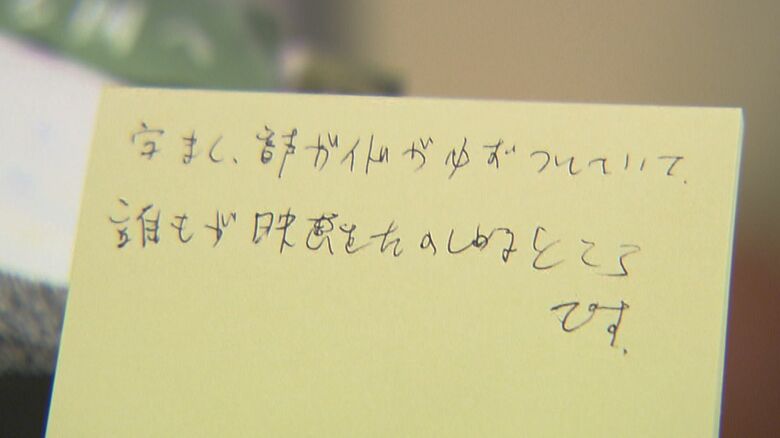 字まく、音声ガイドが必ずついていて、
誰もが映画をたのしめるところ
です。